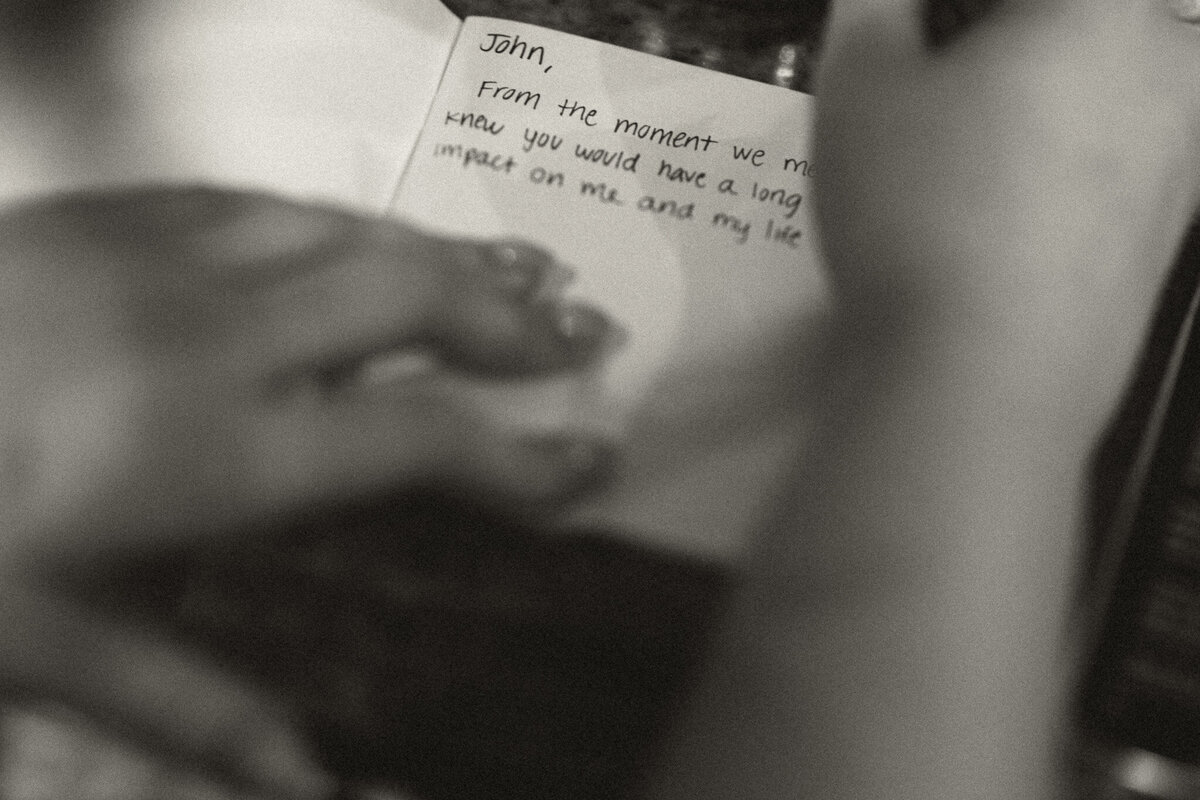 John,
From the moment we me
knew you would have a long
impact on me and my life